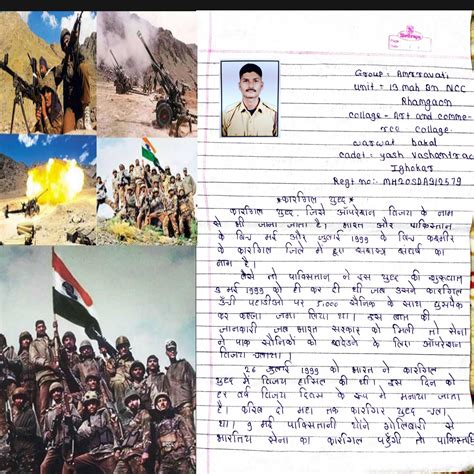 Group : Amravati
unit : 13 mah Bn NCC
Khamgaon
collage :- Art and comme-
rce collage.
warwat bakal
cadet : yash
Regt no:- MH20SDA912579
* कारगिल युद्ध *
कारगिल युद्ध, जिसे ऑपरेशन विजय के नाम
से भी जाना जाता है। भारत और पाकिस्तान
के बिच मई और जुलाई 1999 के बिच कश्मीर
के कारगिल जिले में हुए सशस्त्र संघर्ष का
नाम है।
वैसे तो पाकिस्तान ने इस युद्ध की शुरुआत
3 मई 1999 को ही कर दी थी जब उसने कारगिल
की ऊँची पहाडीयो पर 5,000 सैनिक के साथ घुसपैठ
कर कब्जा जमा लिया था। इस बात की
जानकारी जब भारत सरकार को मिली तो सेना
ने पाक सैनिकों को खदेडने के लिए ऑपरेशन
विजय चलाया।
26 जुलाई 1999 को भारत ने कारगिल
युद्ध में विजय हासिल की थी। इस दिन को
हर वर्ष विजय दिवस के रूप में मनाया जाता
है। करिब दो महा तक कारगिर युद्ध चला
था। 9 मई पाकिस्तानी गोलिबारी से
भारतिय सेना का कारगिल पहुँची तो पाकिस्ता